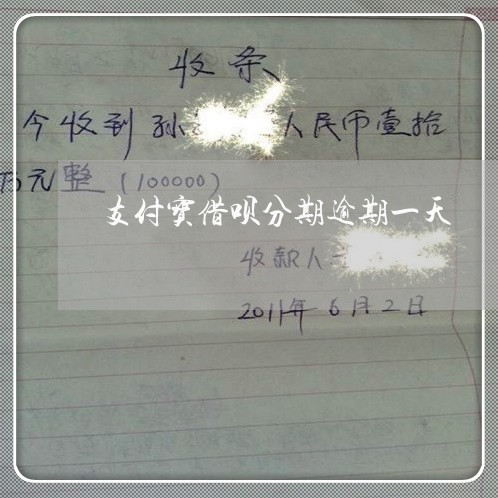 收条
今收到孙 人民币壹拾
万元整(100000)
支付宝借呗分期逾期一天
收款人
2011年6月2日